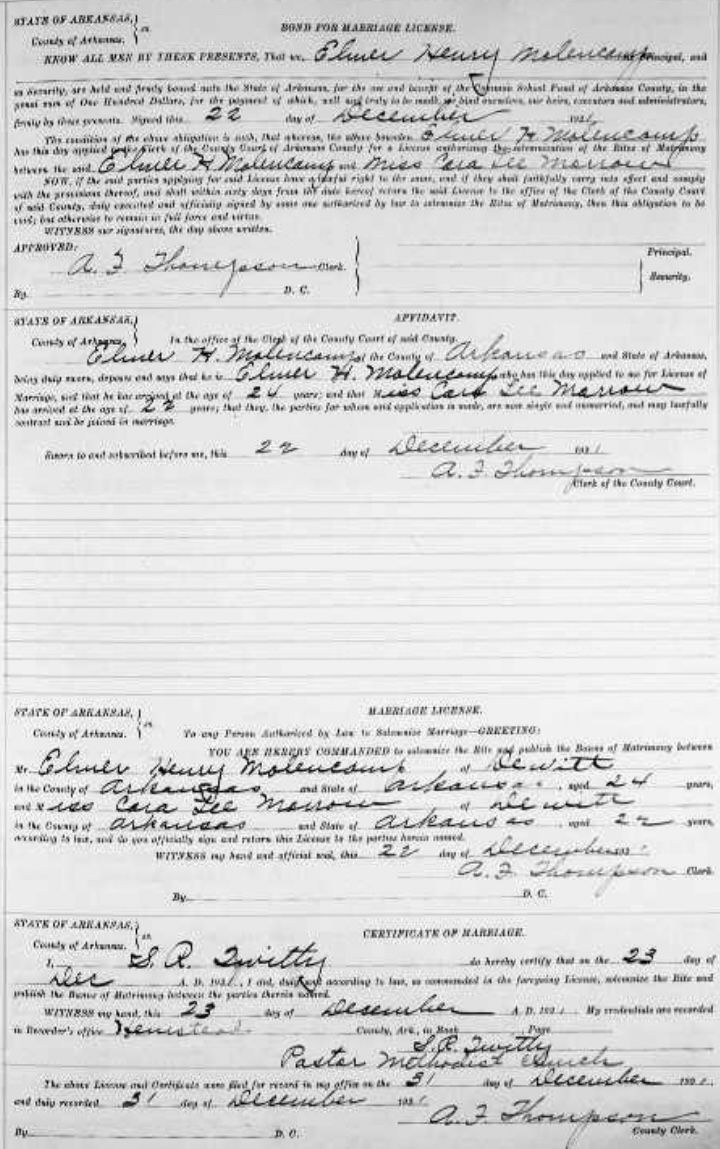 STATE OF ARKANSAS, } ss. BOND FOR MARRIAGE LICENSE.
County of Arkansas.
KNOW ALL MEN BY THESE PRESENTS, That we, Elmer Henry Molencamp as principal, and
as Security, are held and firmly bound unto the State of Arkansas, for the use and benefit of the Common School Fund of Arkansas County, in the
penal sum of One Hundred Dollars, for the payment of which, well and truly to be made, we bind ourselves, our heirs, executors and administrators,
firmly by these presents. Signed this 22 day of December 1921
The condition of the above obligation is such, that whereas, the above bounden Elmer H Molencamp
has this day applied to the Clerk of the County Court of Arkansas County for a License authorizing the solemnization of the Rites of Matrimony
between the said Elmer H. Molencamp and Miss Cara Lee Marrow
NOW, if the said parties applying for said License have a lawful right to the same, and if they shall faithfully carry into effect and comply
with the provisions thereof, and shall within sixty days from the date hereof return the said License to the office of the Clerk of the County Court
of said County, duly executed and officially signed by some one authorized by law to solemnize the Rites of Matrimony, then this obligation to be
void; but otherwise to remain in full force and virtue.
WITNESS our signatures, the day above written.
APPROVED:
A. F. Thompson Clerk. Principal.
By D. C. Security.
STATE OF ARKANSAS, } AFFIDAVIT.
County of Arkansas, In the office of the Clerk of the County Court of said County.
Elmer H. Molencamp of the County of Arkansas and State of Arkansas,
being duly sworn, deposes and says that he is Elmer H. Molencamp who has this day applied to me for License of
Marriage, and that he has arrived at the age of 24 years; and that Miss Cara Lee Marrow
has arrived at the age of 22 years; that they, the parties for whom said application is made, are now single and unmarried, and may lawfully
contract and be joined in marriage.
Sworn to and subscribed before me, this 22 day of December 1921
A. F. Thompson
Clerk of the County Court.
STATE OF ARKANSAS, } ss. MARRIAGE LICENSE.
County of Arkansas. To any Person Authorized by Law to Solemnize Marriage—GREETING:
YOU ARE HEREBY COMMANDED to solemnize the Rite and publish the Banns of Matrimony between
Mr. Elmer Henry Molencamp of Dewitt
in the County of Arkansas and State of Arkansas, aged 24 years,
and Miss Cara Lee Marrow of Dewitt
in the County of Arkansas and State of Arkansas, aged 22 years,
according to law, and do you officially sign and return this License to the parties herein named.
WITNESS my hand and official seal, this 22 day of December 192
A. F. Thompson Clerk.
By D. C.
STATE OF ARKANSAS, } ss. CERTIFICATE OF MARRIAGE.
County of Arkansas.
I, S. R. Twitty do hereby certify that on the 23 day of
Dec A. D. 1921, I did, duly and according to law, as commanded in the foregoing License, solemnize the Rite and
publish the Banns of Matrimony between the parties therein named.
WITNESS my hand, this 23 day of December A. D. 1921. My credentials are recorded
in Recorder's office Hempstead County, Ark., in Book Page
S. R. Twitty
Pastor Methodist Church
The above License and Certificate were filed for record in my office on the 31 day of December 1921
and duly recorded 31 day of December 1921
A. F. Thompson
By D. C. County Clerk.